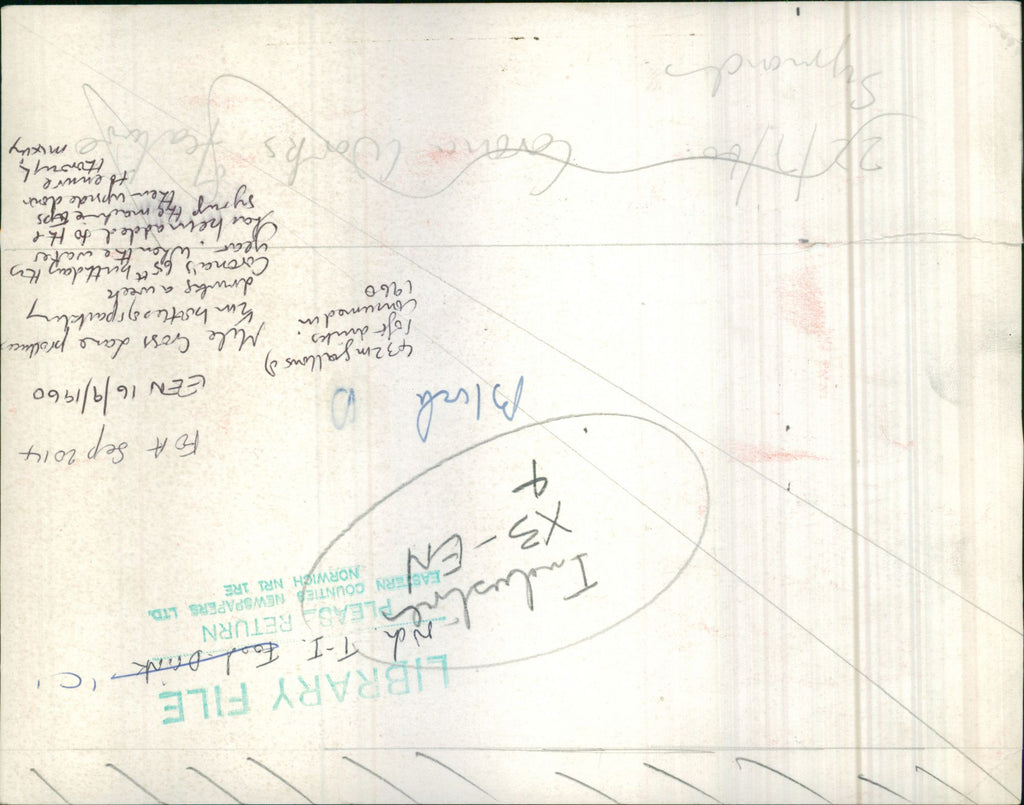 LIBRARY FILE
Nch. T-I. Food-Drink 'C'
PLEASE RETURN
EASTERN COUNTIES NEWSPAPERS LTD.
NORWICH NR1 1RE
Industries
X3 - EN
4
Block
FDA Sep 2014
EEN 16/9/1960
Mile Cross Lane produces
½m bottles of sparkling
drinks a week
Corona's 65th birthday this
year. When the water
has been added to the
syrup the machine tips
them upside down
to ensure
thorough
mixing
432m gallons of
soft drinks
consumed in
1960
22/7/60 Corona Works feature
Symonds